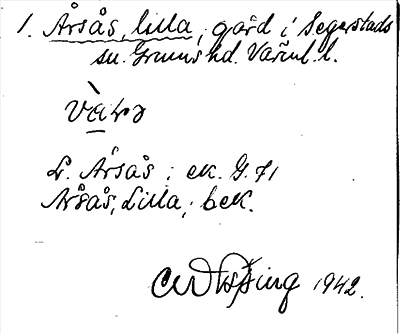 1. Årsås, lilla, gård i Segerstads
sn. Grums hd. Värml. l.
L. Årsås; ek. G. 71
Årsås, Lilla; bek.
1942.